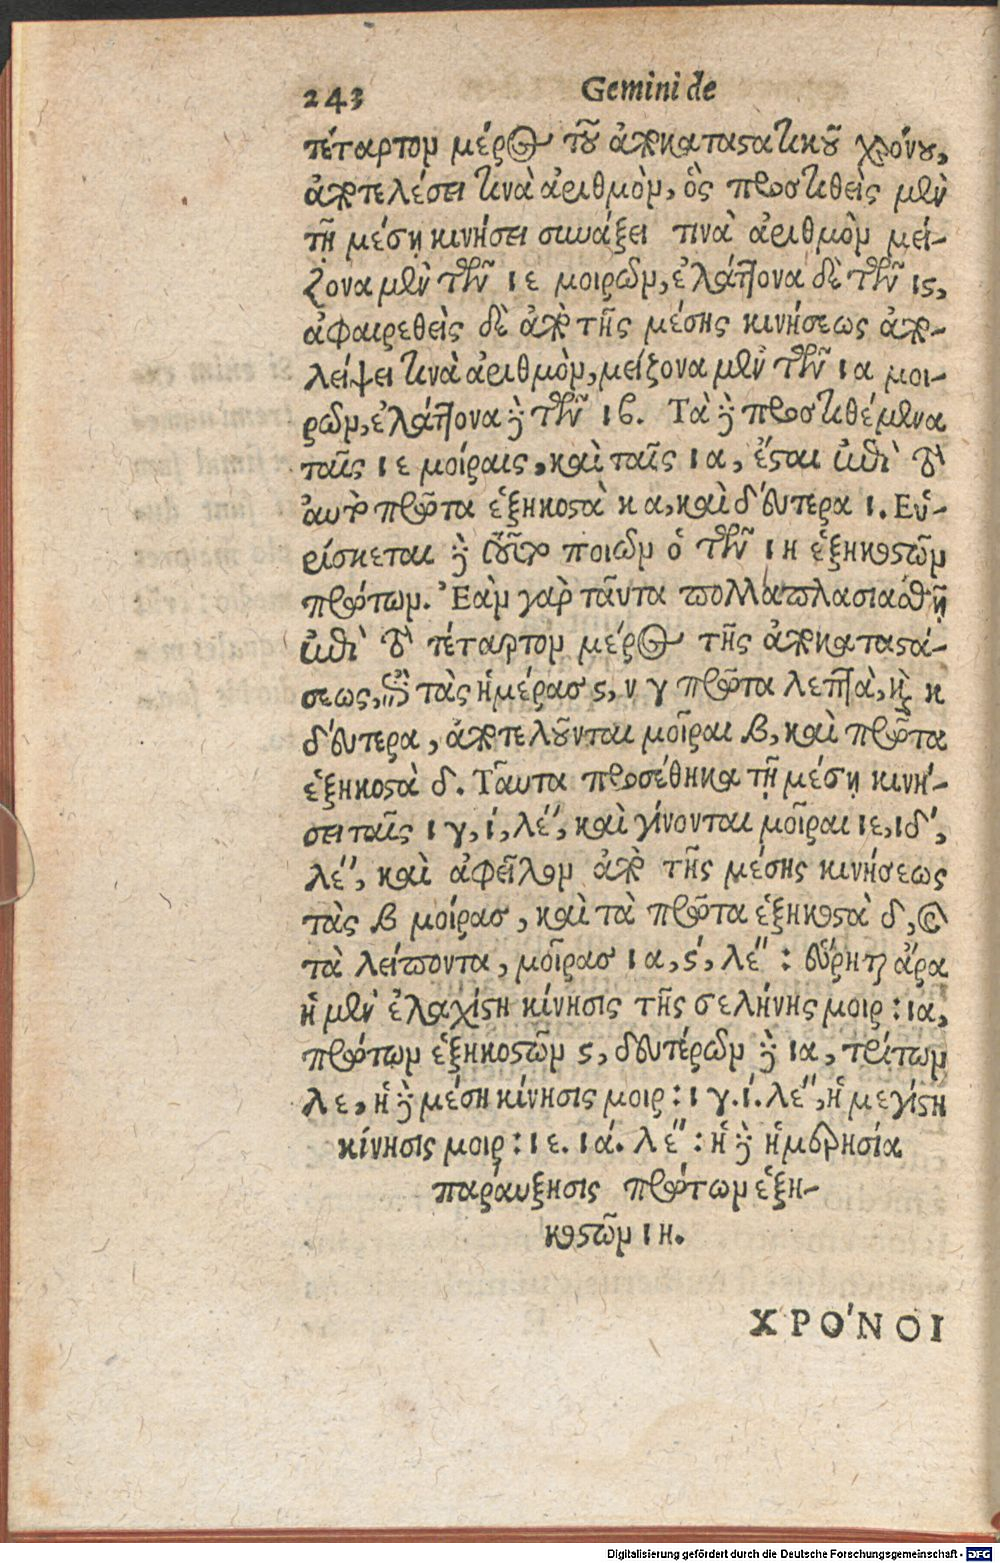 243 Gemini de
τέταρτον μέρος τοῦ ἀποκαταστατικοῦ χρόνου,
ἀποτελέσει τινὰ ἀριθμὸν, ὃς προστιθεὶς μὲν
τῇ μέσῃ κινήσει συνάξει τινὰ ἀριθμὸν μεί-
ζονα μὲν τῶν ιε μοιρῶν, ἐλάττονα δὲ τῶν ις,
ἀφαιρεθεὶς δὲ ἀπὸ τῆς μέσης κινήσεως ἀπο-
λείψει τινὰ ἀριθμὸν, μείζονα μὲν τῶν ια μοι-
ρῶν, ἐλάττονα δὲ τῶν ιβ. Τὰ δὲ προστιθέμενα
ταῖς ιε μοίραις, καὶ ταῖς ια, ἔσται ἐπὶ τὸ
αὐτὸ πρῶτα ἑξηκοστὰ κα, καὶ δεύτερα ι. Εὑ-
ρίσκεται δὲ τοῦτο ποιῶν ὁ τῶν ιη ἑξηκοστῶν
πρώτων. Ἐὰν γὰρ ταῦτα πολλαπλασιασθῇ
ἐπὶ τὸ τέταρτον μέρος τῆς ἀποκαταστά-
σεως, ἐπὶ τὰς ἡμέρας ς, νγ πρῶτα λεπτὰ, καὶ κ
δεύτερα, ἀποτελοῦνται μοῖραι β, καὶ πρῶτα
ἑξηκοστὰ δ. Ταῦτα προσέθηκα τῇ μέσῃ κινή-
σει ταῖς ιγ, ί, λέ′′, καὶ γίνονται μοῖραι ιε, ιδ′,
λέ′′, καὶ ἀφεῖλον ἀπὸ τῆς μέσης κινήσεως
τὰς β μοίρας, καὶ τὰ πρῶτα ἑξηκοστὰ δ, καὶ
τὰ λείποντα, μοῖρας ια, ς′, λε′′ : εὕρηται ἄρα
ἡ μὲν ἐλαχίστη κίνησις τῆς σελήνης μοιρ : ια,
πρώτων ἑξηκοστῶν ς, δευτέρων δὲ ια, τρίτων
λε, ἡ δὲ μέση κίνησις μοιρ : ιγ. ί. λέ′′, ἡ μεγίστη
κίνησις μοιρ : ιε. ιά. λε′′ : ἡ δὲ ἡμερησία
παραύξησις πρώτων ἑξη-
κοστῶν ιη.
ΧΡΟ'ΝΟΙ
Digitalisierung gefördert durch die Deutsche Forschungsgemeinschaft - DFG